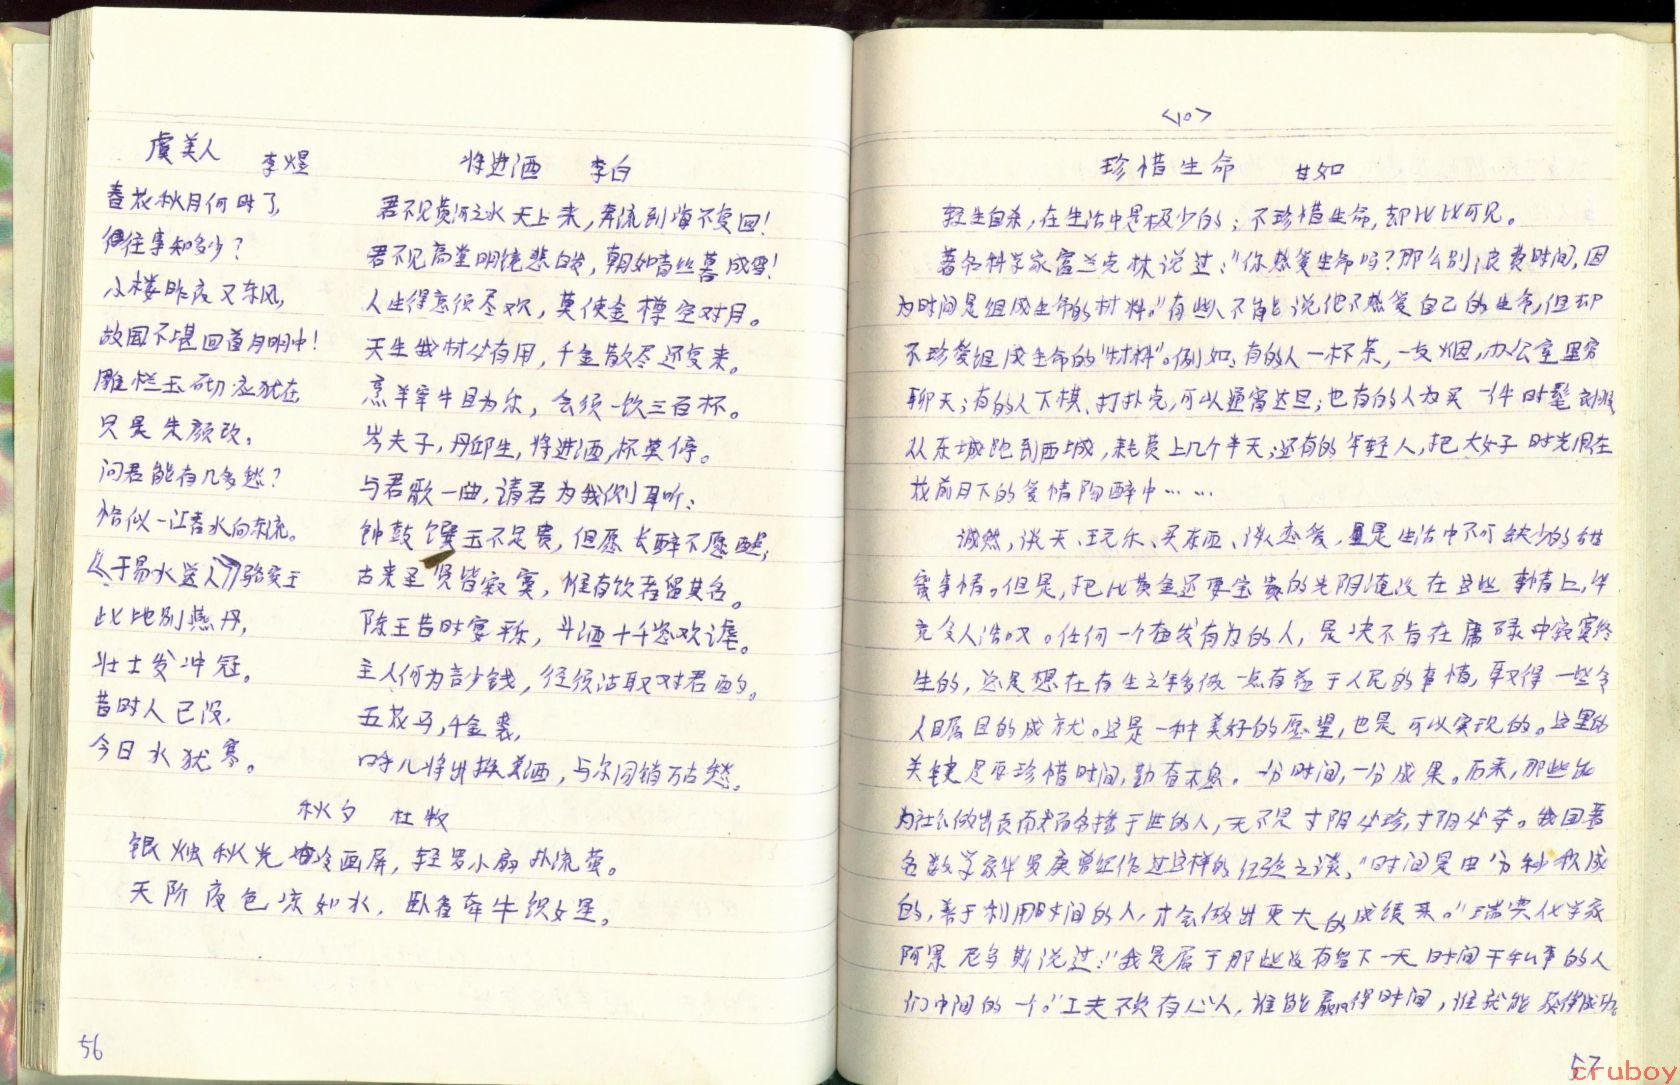 虞美人 李煜
春花秋月何时了,
往事知多少?
小楼昨夜又东风,
故国不堪回首月明中!
雕栏玉砌应犹在,
只是朱颜改,
问君能有几多愁?
恰似一江春水向东流。
《于易水送人》骆宾王
此地别燕丹,
壮士发冲冠。
昔时人已没,
今日水犹寒。
将进酒 李白
君不见黄河之水天上来,奔流到海不复回!
君不见高堂明镜悲白发,朝如青丝暮成雪!
人生得意须尽欢,莫使金樽空对月。
天生我材必有用,千金散尽还复来。
烹羊宰牛且为乐,会须一饮三百杯。
岑夫子,丹邱生,将进酒,杯莫停。
与君歌一曲,请君为我侧耳听:
钟鼓馔玉不足贵,但愿长醉不愿醒;
古来圣贤皆寂寞,惟有饮者留其名。
陈王昔时宴平乐,斗酒十千恣欢谑。
主人何为言少钱,径须沽取对君酌。
五花马,千金裘,
呼儿将出换美酒,与尔同销万古愁。
秋夕 杜牧
银烛秋光冷画屏,轻罗小扇扑流萤。
天阶夜色凉如水,卧看牵牛织女星。
56
<10>
珍惜生命 甘如
轻生自杀,在生活中是极少的;不珍惜生命,却比比可见。
著名科学家富兰克林说过:“你热爱生命吗?那么别浪费时间,因
为时间是组成生命的材料。”有些人不能说他不热爱自己的生命,但却
不珍爱组成生命的“材料”。例如,有的人一杯茶,一支烟,办公室里穷
聊天;有的人下棋、打扑克,可以通宵达旦;也有的人为买一件时髦
从东城跑到西城,耗费上几个半天;还有的年轻人,把大好时光用在
花前月下的爱情陶醉中……
诚然,谈天、玩乐、买东西、谈恋爱,是生活中不可缺少的
事情。但是,把比黄金还要宝贵的光阴淹没在这些事情上,毕
竟令人浩叹。任何一个奋发有为的人,是决不肯在庸碌中寂寞终
生的,总是想在有生之年多做一点有益于人民的事情,取得一些令
人瞩目的成就。这是一种美好的愿望,也是可以实现的。这里的
关键是要珍惜时间,勤奋不息。一分时间,一分成果。历来,那些能
为社会做出贡献而名播于世的人,无不是寸阴必珍,寸阴必夺。我国著
名数学家华罗庚曾经作过这样的经验之谈,“时间是由分秒积成
的,善于利用时间的人,才会做出更大的成绩来。”瑞典化学家
阿累尼乌斯说过:“我是属于那些没有留下一天时间干私事的人
们中间的一个。”工夫不负有心人,谁能赢得时间,谁就能获得成功。
57
cruboy